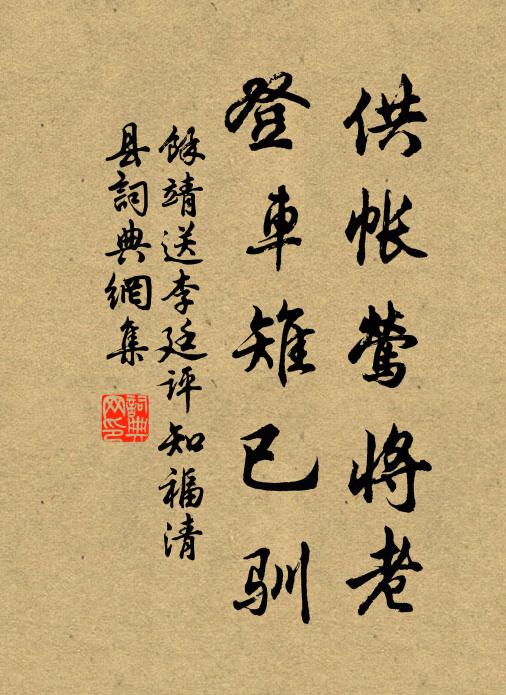 供帐莺将老
登車雉已馴
餘靖送李廷评知福清
县詞典網集
詞典
网印